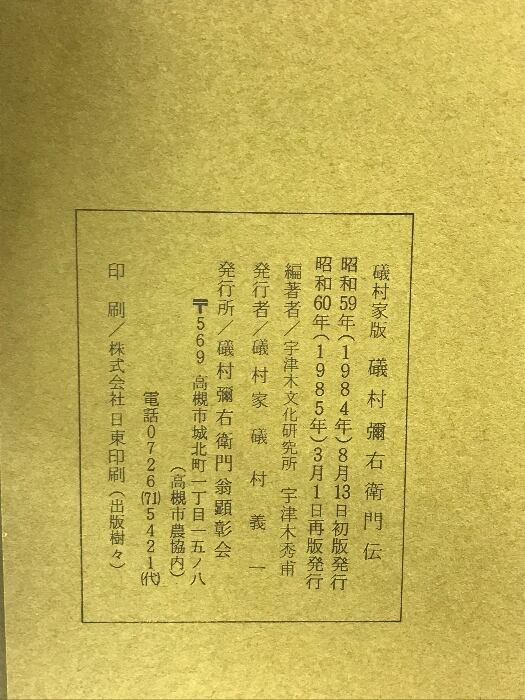 礒村家版 礒村彌右衛門伝
昭和59年(1984年)8月13日初版発行
昭和60年(1985年)3月1日再版発行
編著者/宇津木文化研究所 宇津木秀甫
発行者/礒村家 礒村義一
発行所/礒村彌右衛門翁顕彰会
〒569 高槻市城北町一丁目一五ノ八
(高槻市農協内)
電話0726(71)5421(代)
印刷/株式会社日東印刷(出版樹々)